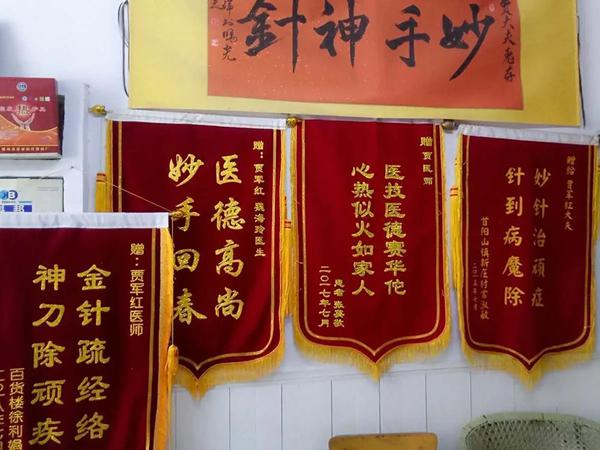 妙手神針
赠:贾军红医师
金针疏经络
神刀除顽疾
百货楼徐利娟
赠:贾军红 魏海玲医生
医德高尚
妙手回春
赠 贾医师
医技医德赛华佗
心热似火如家人
二〇一七年七月
赠给 贾军红大夫
妙针治顽症
针到病魔除
首阳山镇新庄村